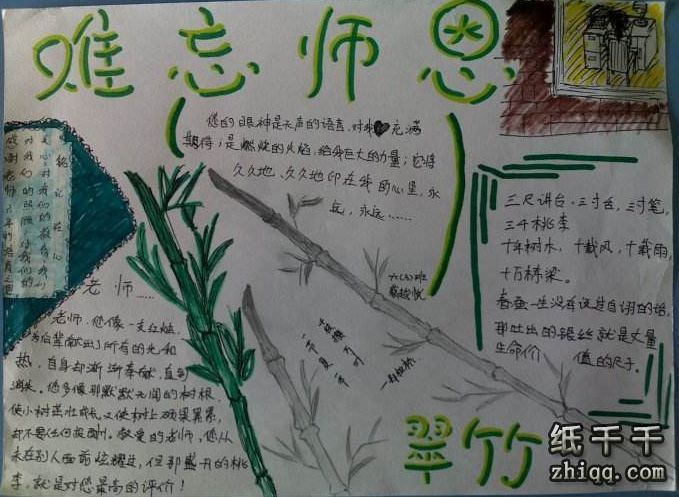 难忘师恩
您的眼神是无声的语言，对我充满
期待；是燃烧的火焰，给我巨大的力量；它将
久久地、久久地印在我的心里，永
远，永远……
三尺讲台，三寸舌，三寸笔，
三千桃李
十年树木，十载风，十载雨，
十万栋梁。
春蚕一生没有说过自诩的话，
那吐出的银丝就是丈量
生命价值的尺子。
六(3)班
老师……
老师，您像一支红烛，
为后辈献出了所有的光和
热，自身却渐渐奉献，直到
消失。您多像那默默无闻的树根，
使小树茁壮成长，又使树上硕果累累，
却不要任何报酬。敬爱的老师，您从
未在别人面前炫耀过，但那盛开的桃
李，就是对您最高的评价！
翠竹
纸千千
zhiqq.com